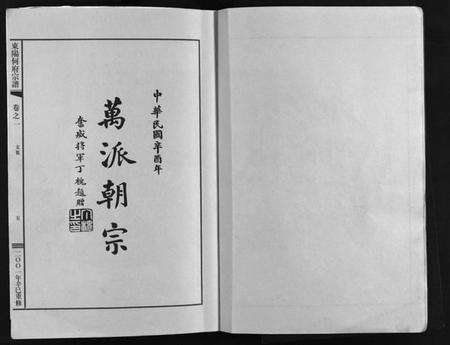 中華民國辛酉年
萬派朝宗
奮威將軍丁槐題贈
東陽何府宗譜
卷之一
五
二○○一年辛巳重修